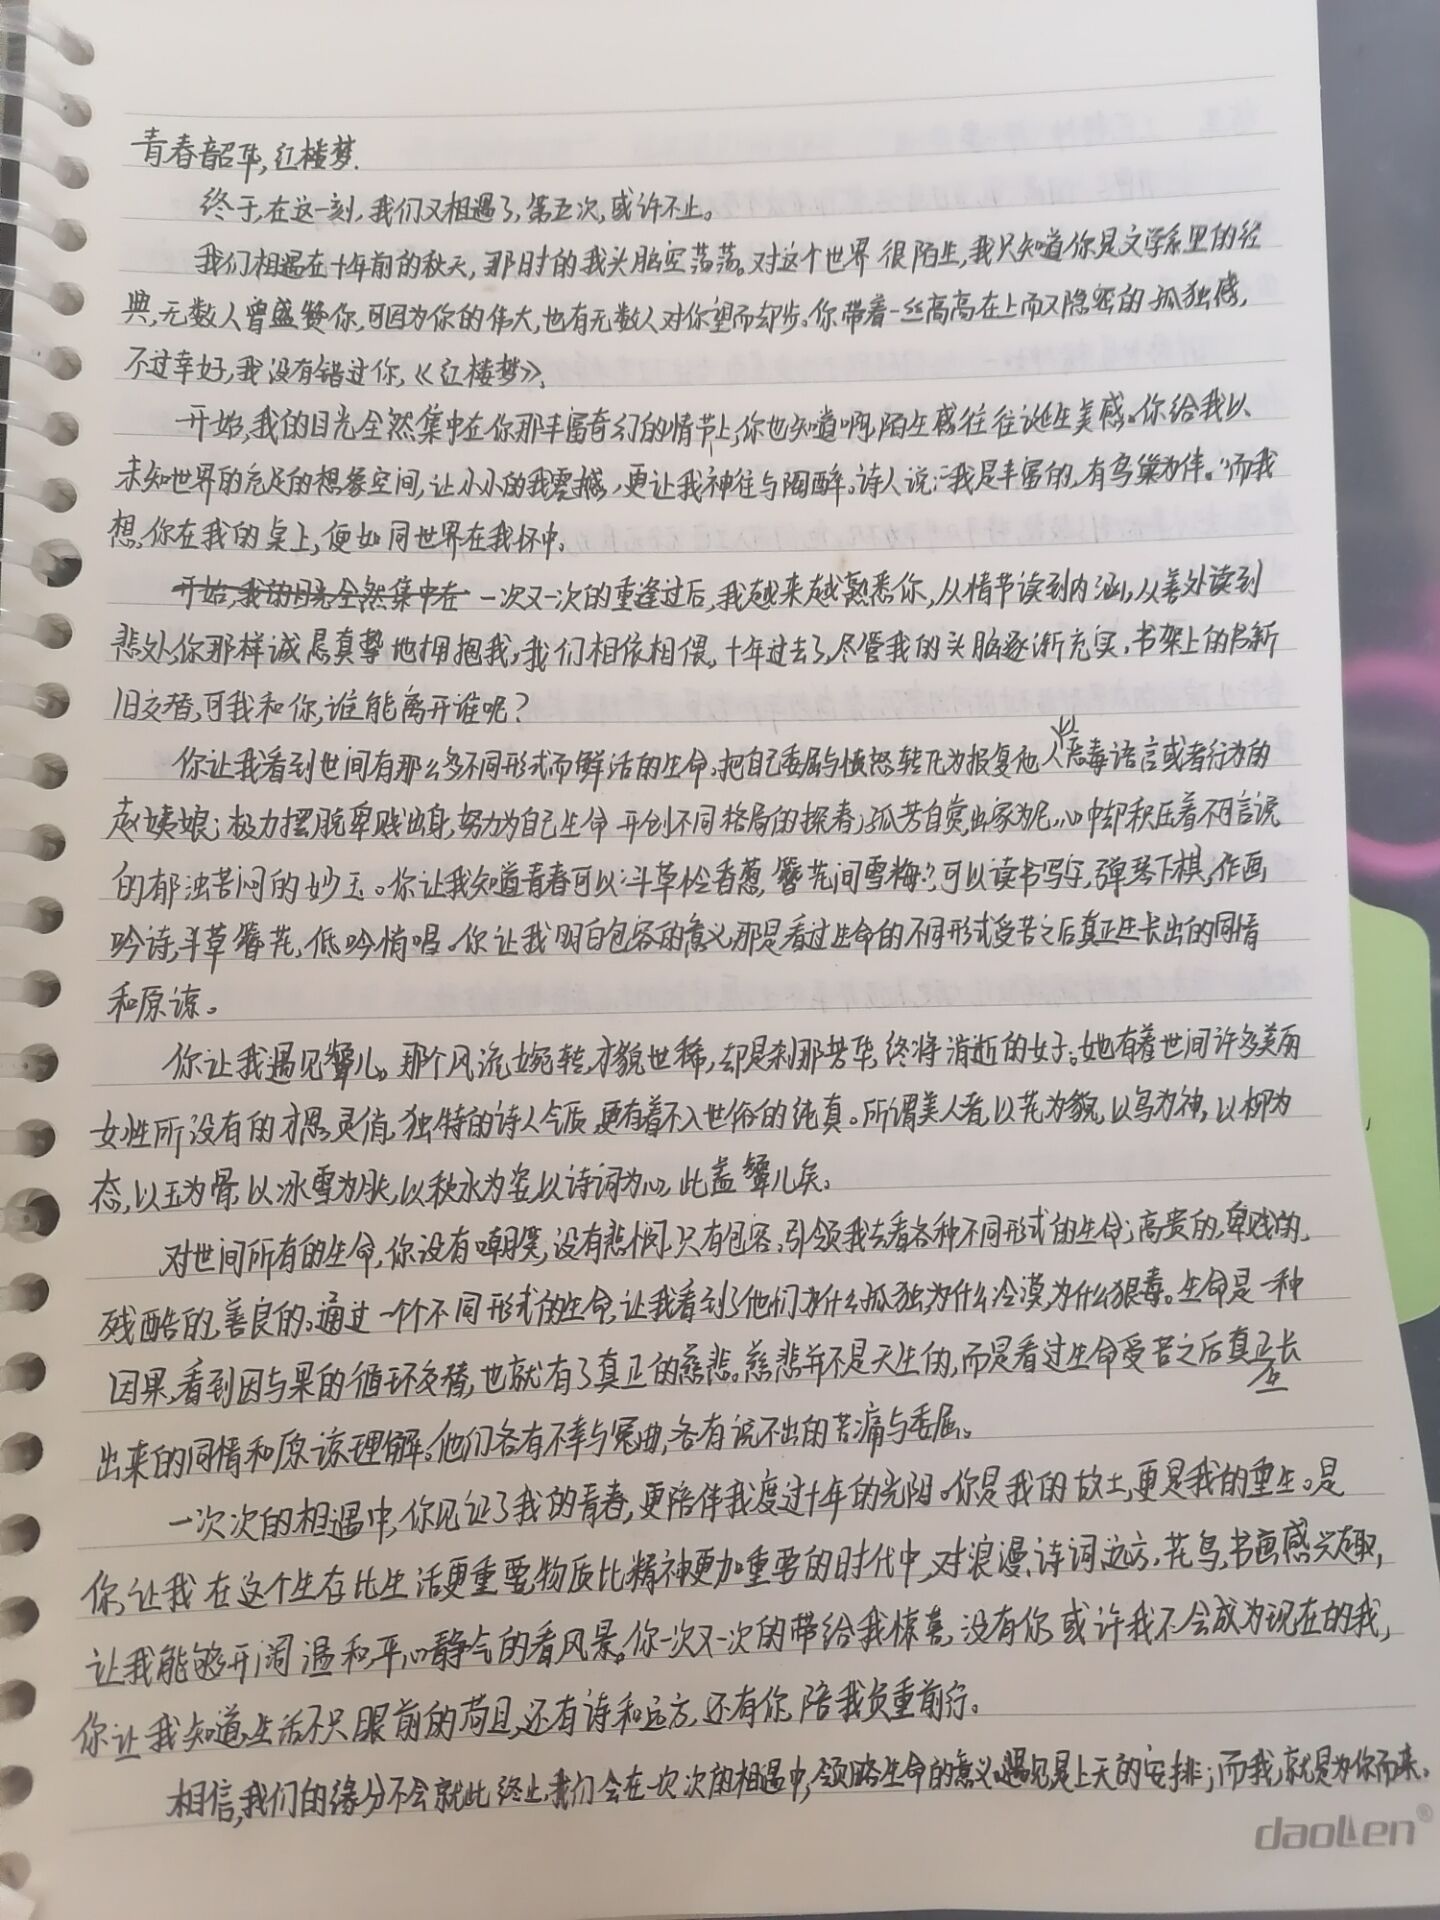 青春韶华,红楼梦.
终于,在这一刻,我们又相遇了,第五次,或许不止。
我们相遇在十年前的秋天,那时的我头脑空荡荡。对这个世界很陌生,我只知道你是文学系里的经
典,无数人曾盛赞你,可因为你的伟大,也有无数人对你望而却步。你带着一丝高高在上而又隐密的孤独感,
不过幸好,我没有错过你,《红楼梦》。
开始,我的目光全然集中在你那丰富奇幻的情节上,你也知道啊,陌生感往往诞生美感。你给我以
未知世界的充足的想象空间,让小小的我震撼,更让我神往与陶醉。诗人说:“我是丰富的,有鸟巢为伴。”而我
想,你在我的桌上,便如同世界在我怀中。
开始,我的目光全然集中在 一次又一次的重逢过后,我越来越熟悉你,从情节读到内涵,从善处读到
悲处,你那样诚恳真挚地拥抱我,我们相依相偎,十年过去了,尽管我的头脑逐渐充实,书架上的书新
旧交替,可我和你,谁能离开谁呢?
你让我看到世间有那么多不同形式而鲜活的生命,把自己委屈与愤怒转化为报复他人的恶毒语言或者行为的
赵姨娘;极力摆脱卑贱出身,努力为自己生命开创不同格局的探春;孤芳自赏,出家为尼,心中却积压着不可言说
的郁浊苦闷的妙玉。你让我知道青春可以“斗草怜香蕙,簪花间雪梅”?可以读书写字,弹琴下棋,作画
吟诗,斗草簪花,低吟悄唱。你让我明白包容的意义,那是看过生命的不同形式受苦之后真正生长出的同情
和原谅。
你让我遇见颦儿。那个风流婉转,才貌世稀,却是刹那芳华,终将消逝的女子。她有着世间许多美丽
女性所没有的才思灵俏,独特的诗人气质,更有着不入世俗的纯真。所谓美人者,以花为貌,以鸟为神,以柳为
态,以玉为骨,以冰雪为肤,以秋水为姿,以诗词为心,此盖颦儿矣。
对世间所有的生命,你没有嘲笑,没有悲悯,只有包容,引领我去看各种不同形式的生命;高贵的,卑贱的,
残酷的,善良的。通过一个个不同形式的生命,让我看到了他们为什么孤独,为什么冷漠,为什么狠毒。生命是一种
因果,看到因与果的循环交替,也就有了真正的慈悲。慈悲并不是天生的,而是看过生命受苦之后真正生长
出来的同情和原谅理解。他们各有不幸与冤曲,各有说不出的苦痛与委屈。
一次次的相遇中,你见证了我的青春,更陪伴我度过十年的光阴。你是我的故土,更是我的重生。是
你,让我在这个生存比生活更重要,物质比精神更加重要的时代中,对浪漫、诗词、远方,花鸟,书画感兴趣,
让我能够开阔温和,平心静气的看风景。你一次又一次的带给我惊喜,没有你,或许我不会成为现在的我,
你让我知道,生活不只眼前的苟且,还有诗和远方,还有你,陪我负重前行。
相信,我们的缘分不会就此终止,我们会在一次次的相遇中,领略生命的意义。遇见是上天的安排;而我,就是为你而来。
daoLen®